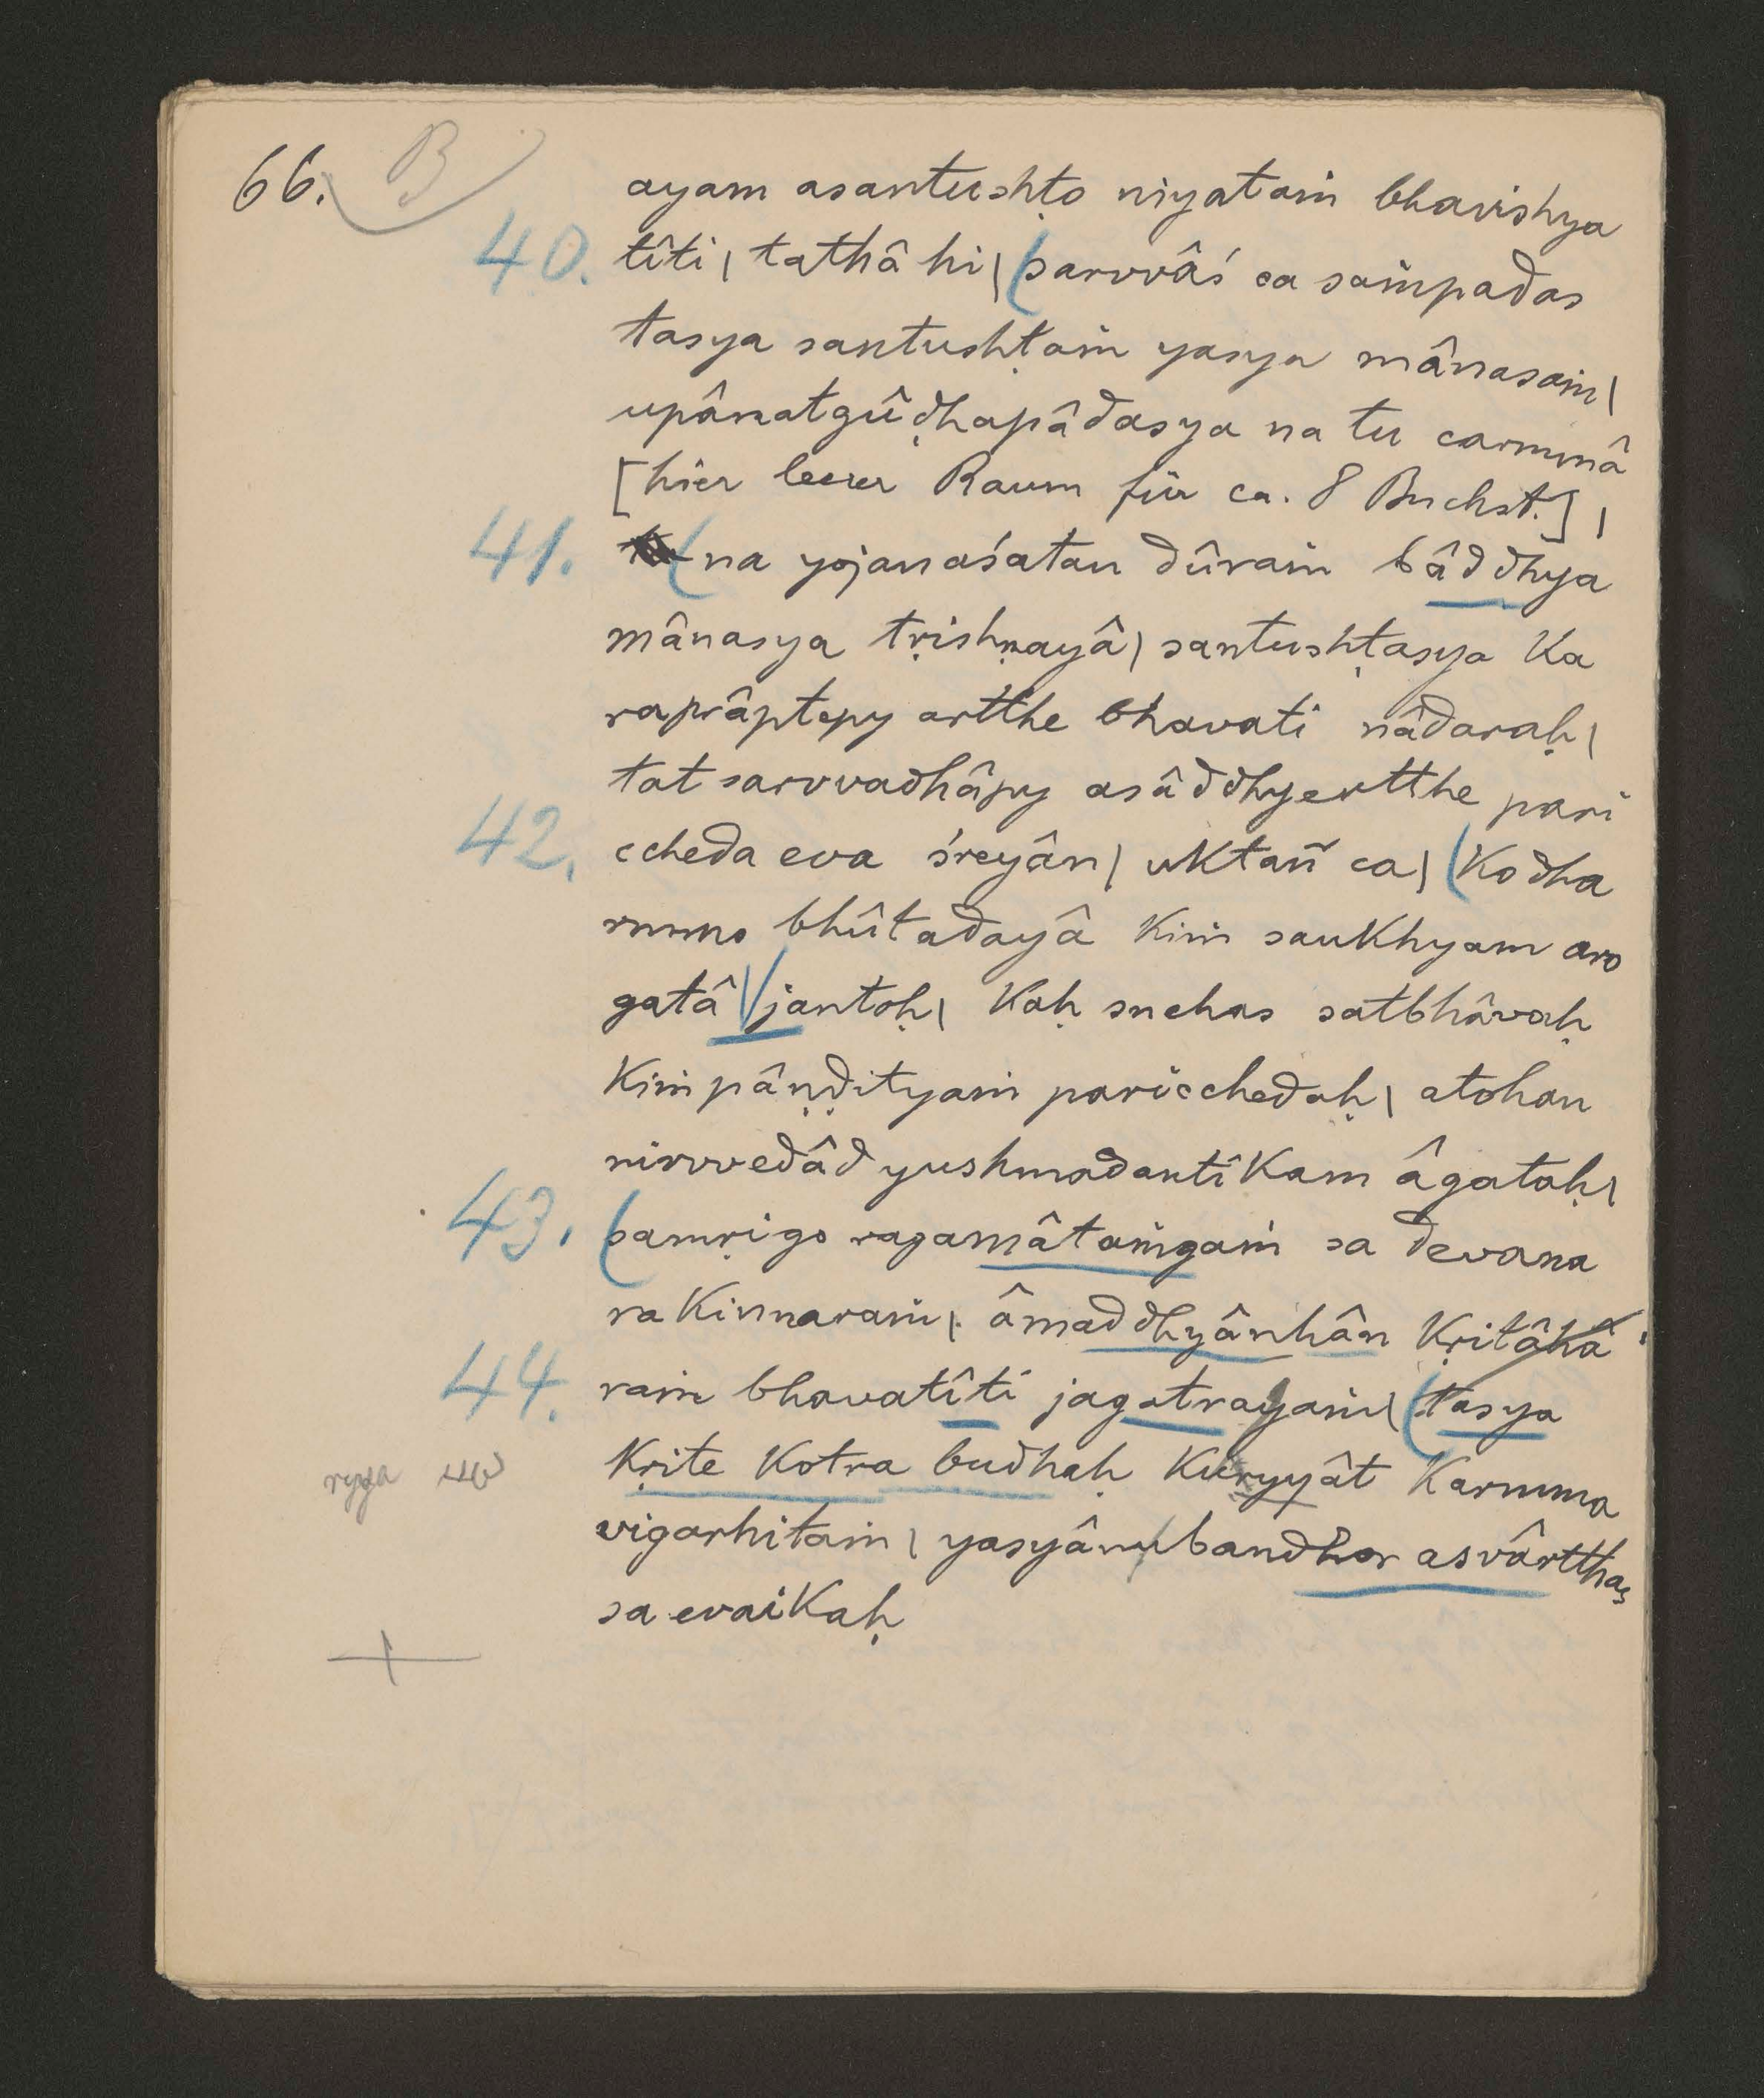 66. B
ayam asantushṭo niyataṁ bhavishya
40. tîti | tathâ hi | (sarvvâś ca saṁpadas
tasya santushṭaṁ yasya mânasaṁ |
upânatgûḍhapâdasya na tu carmmâ
[hier leerer Raum für ca. 8 Buchst.] |
41. (na yojanaśatan dûraṁ bâddhya
mânasya tṛishṇayâ | santushṭasya ka
raprâptepy artthe bhavati nâdaraḥ |
tat sarvvadhâpy asâddhyertthe pari
42. ccheda eva śreyân | uktañ ca | (ko dha
rmmo bhûtadayâ kiṁ saukhyam aro
gatâ | jantoḥ | kaḥ snehas satbhâvaḥ
kiṁ pâṇḍityaṁ paricchedaḥ | atohan
nirvvedâd yushmadantikam âgataḥ |
43. (samṛigo ragamâtaṁgaṁ sa devana
rakinnaraṁ | âmaddhyânhân kṛitâhâ
44. raṁ bhavatîti jagatrayaṁ | (tasya
kṛite kotra budhaḥ kuryyât karmma
ryya
vigarhitaṁ | yasyânubandhar asvârtthas
sa evaikaḥ